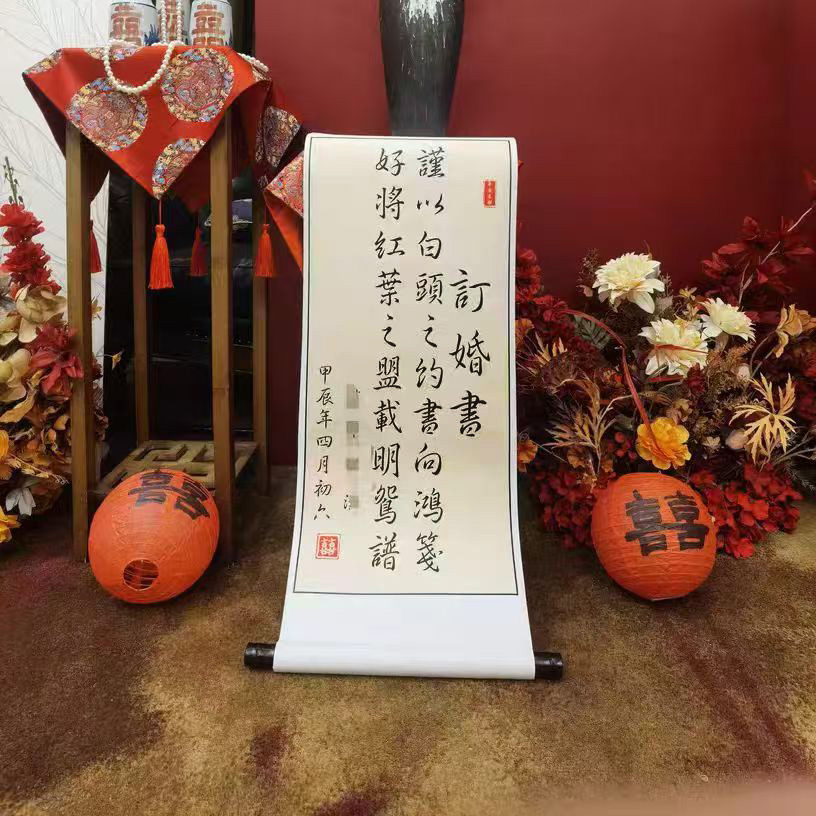 訂婚書
謹以白頭之約書向鴻箋
好將紅葉之盟載明鴛譜
甲辰年四月初六
囍
囍
囍
囍
囍